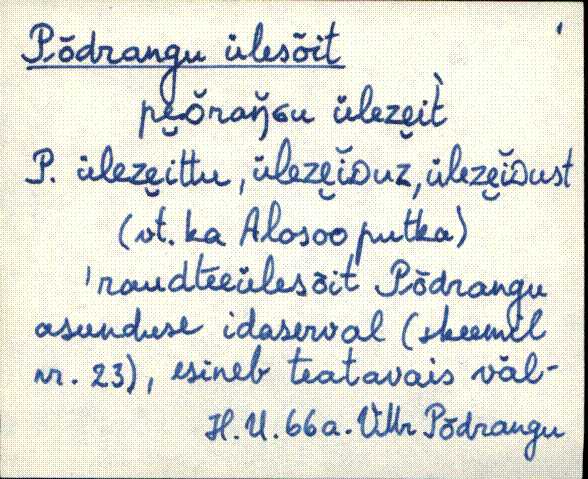 Põdrangu ülesõit
pe̮ŏraŋ̆ɢu üleze̮it̀
P. üleze̮ittu, üleze̮ĭᴅuz, üleze̮ĭᴅust
(vt. ka Alosoo putka)
'raudteeülesõit Põdrangu
asunduse idaserval (skeemil
nr. 23), esineb teatavais väl-
H. U. 66a. VMr Põdrangu